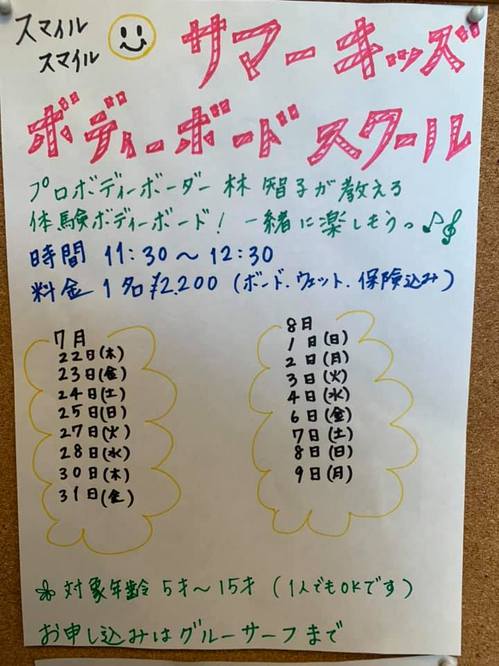 スマイル
スマイル
サマーキッズ
ボディーボードスクール
プロボディーボーダー 林 智子が教える
体験ボディーボード！ 一緒に楽しもうっ♪𝄞
時間 11:30〜12:30
料金 1名¥2,200 (ボード、ウェット、保険込み)
7月
22日(木)
23日(金)
24日(土)
25日(日)
27日(火)
28日(水)
30日(木)
31日(金)
8月
1日(日)
2日(月)
3日(火)
4日(水)
6日(金)
7日(土)
8日(日)
9日(月)
対象年齢 5才〜15才 (1人でもOKです)
お申し込みはグルーサーフまで